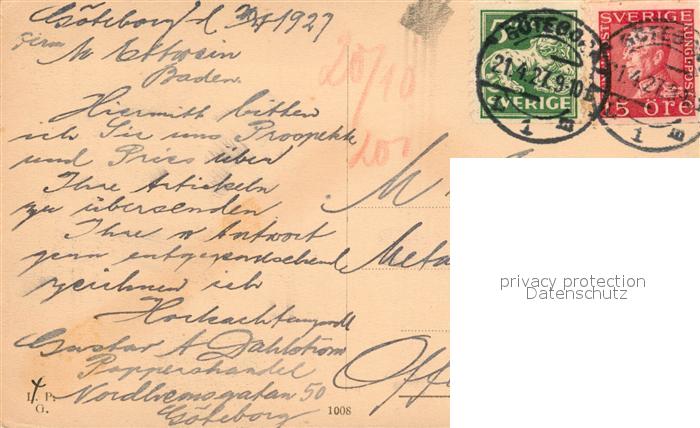 Göteborg d. 20/4 1927
Firm
M Ettwein
Baden.
Hiermitt bitten
ich Sie uns Prospekte
und Preiss über
Ihre Artikeln
zu übersenden
Ihre Antwort
gern entgegensehend
zeichnen ich
Hochachtungsvoll
Gustav A Dahlström
Pappershandel
Nordhemsgatan 50
Göteborg
L. P.
G.
1008
20/10
201
5
SVERIGE
SVERIGE
KUNGL. POST
15 ÖRE
GÖTEBORG
21.4.27.
1
GÖTEBORG
21.4.27.
1
M
Meta
Offe
privacy protection
Datenschutz